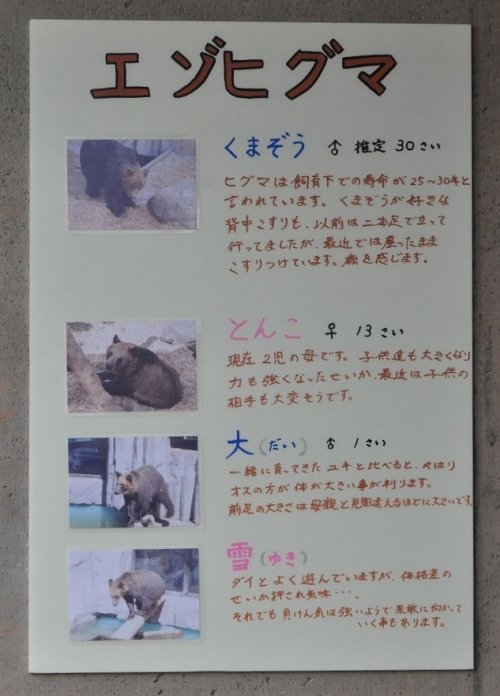 エゾヒグマ
くまぞう ♂ 推定 30さい
ヒグマは飼育下での寿命が25〜30年と
言われています。くまぞうが好きな
背中こすりも、以前は二本足で立って
行ってましたが、最近では座ったまま
こすりつけています。歳を感じます。
とんこ ♀ 13さい
現在2児の母です。子供達も大きくなり
力も強くなったせいか、最近は子供の
相手も大変そうです。
大(だい) ♂ 1さい
一緒に育ってきたユキと比べると、やはり
オスの方が体が大きい事が判ります。
前足の大きさは母親と見間違えるほどに大きいです。
雪(ゆき)
ダイとよく遊んでいますが、体格差の
せいか押され気味・・・。
それでも負けん気は強いようで果敢に向かって
いく事もあります。